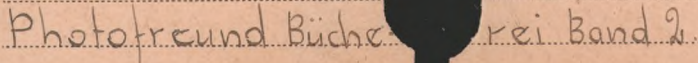 Photofreund Büche rei Band 2.